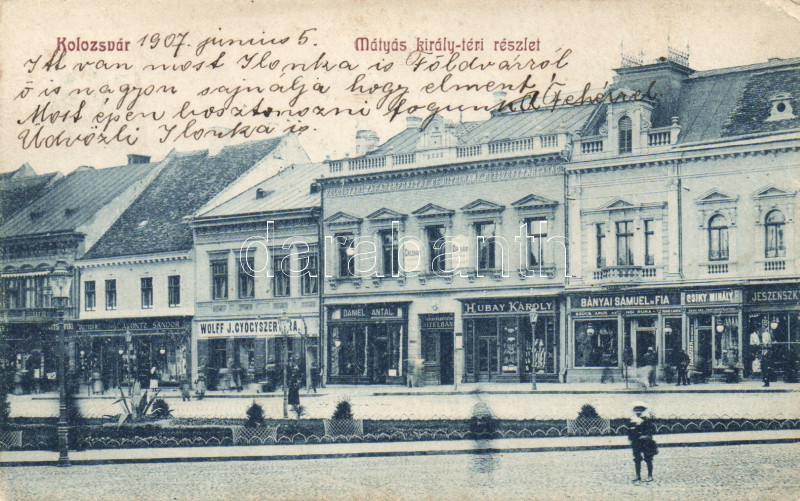 Kolozsvár 1907. junius 5. Mátyás király-téri részlet
Itt van most Ilonka is Földvárról
ő is nagyon sajnálja hogy elment!
Most épen bosztonozni fogunk a Fehérrel.
Üdvözli Ilonka is.
darabanth.com
WOLFF J. GYÓGYSZER
DANIEL ANTAL
HUBAY KÁROLY
BÁNYAI SÁMUEL és FIA
CSIKY MIHÁLY
JESZENSZK